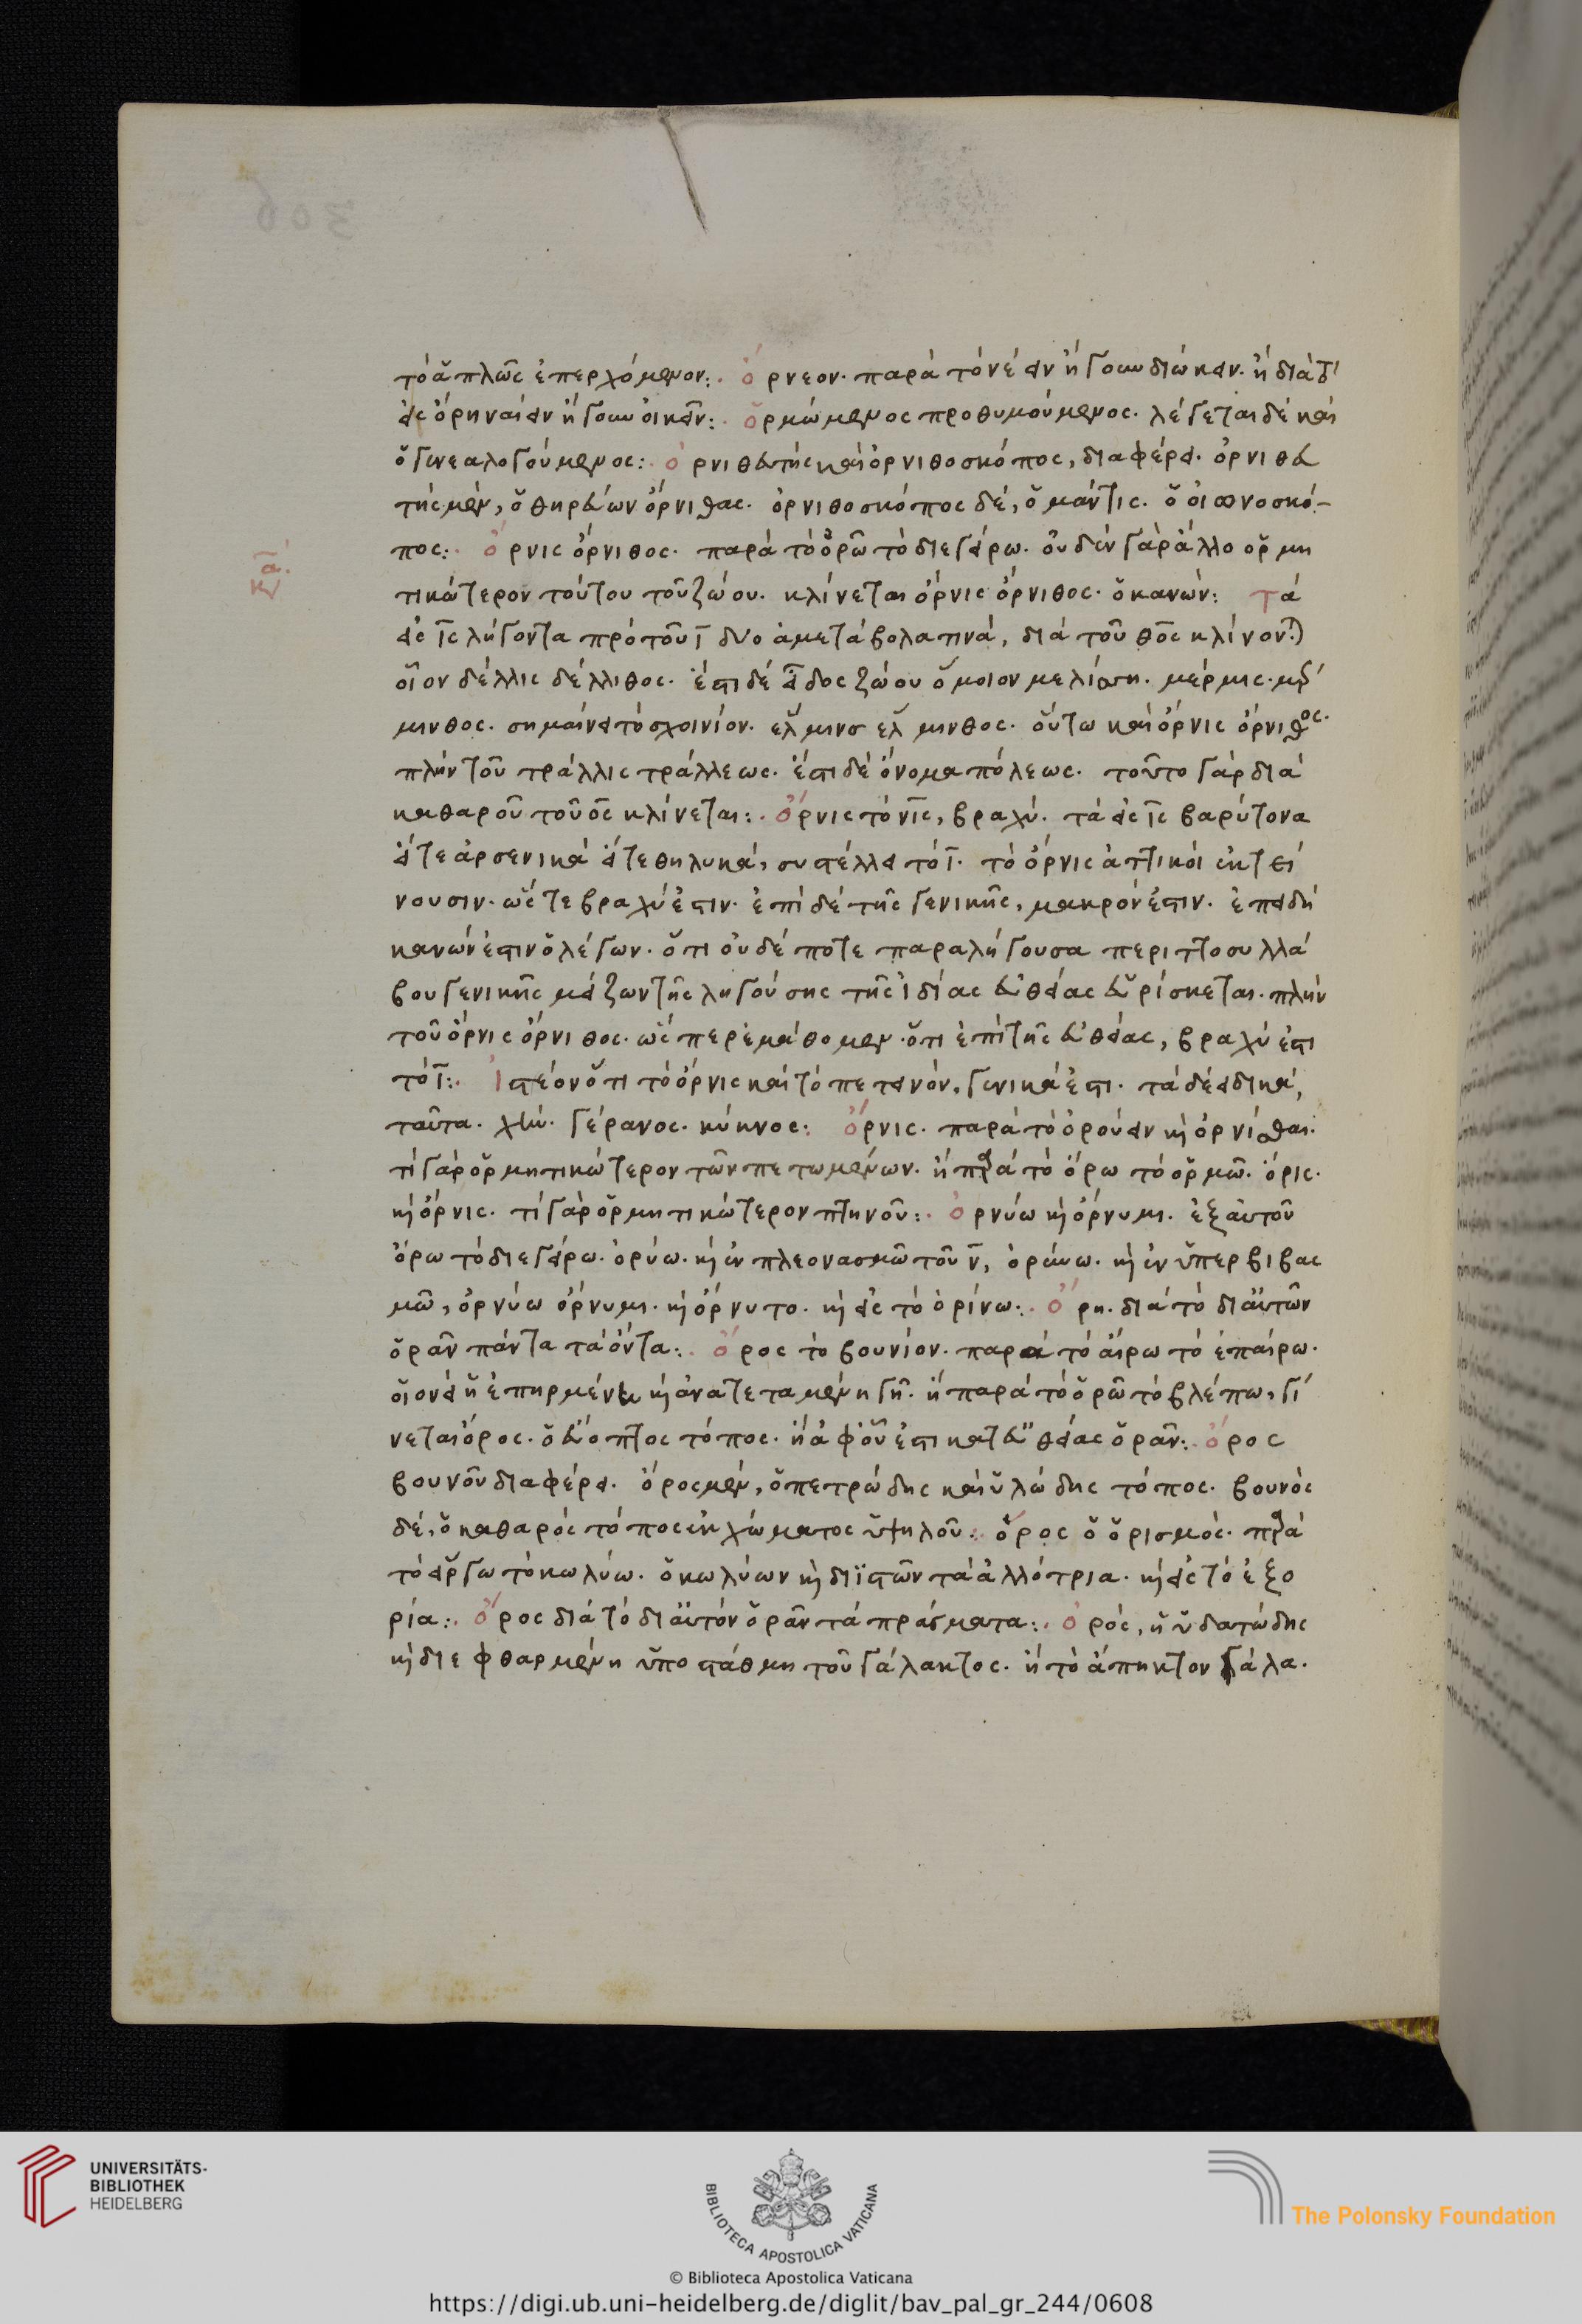 τὸ ἁπλῶς ἐπερχόμενον:. ὄρνεον. παρὰ τὸ νέειν ἤγουν διώκειν. ἢ διὰ τὸ
εἰς ὄρη ναίειν ἤγουν οἰκεῖν:. ὁρμώμενος προθυμούμενος. λέγεται δὲ καὶ
ὁ γενεαλογούμενος:. ὀρνιθευτὴς καὶ ὀρνιθοσκόπος, διαφέρει. ὀρνιθευ
τὴς μὲν, ὁ θηρεύων ὄρνιθας. ὀρνιθοσκόπος δὲ, ὁ μάντις. ὁ οἰωνοσκό-
πος:. ὄρνις ὄρνιθος. παρὰ τὸ ὀρῶ τὸ διεγείρω. οὐδὲν γὰρ ἄλλο ὁρμη
τικώτερον τούτου τοῦ ζώου. κλίνεται ὄρνις ὄρνιθος. ὁ κανών: τὰ
εἰς ῑς λήγοντα πρὸ τοῦ ῑ δύο ἀμετάβολα τινὰ, διὰ τοῦ θος κλίνονται
οἷον δέλλις δέλλιθος. ἔστι δὲ εἶδος ζώου ὅμοιον μελίσση. μέρμις. μέρ
μινθος. σημαίνει τὸ σχοινίον. ἕλμινσ ἕλμινθος. οὕτω καὶ ὄρνις ὄρνιθος.
πλὴν τοῦ τράλλις τράλλεως. ἔστι δὲ ὄνομα πόλεως. τοῦτο γὰρ διὰ
καθαροῦ τοῦ ος κλίνεται:. ὄρνις τὸ νις, βραχύ. τὰ εἰς ῑς βαρύτονα
εἴτε ἀρσενικὰ εἴτε θηλυκὰ, συστέλλει τὸ ῑ. τὸ ὄρνις ἀττικοὶ ἐκτεί
νουσιν. ὥστε βραχύ ἐστιν. ἐπὶ δὲ τῆς γενικῆς, μακρόν ἐστιν. ἐπειδὴ
κανών ἐστιν ὁ λέγων. ὅτι οὐδέποτε παραλήγουσα περιττοσυλλά
βου γενικῆς μείζων τῆς ληγούσης τῆς ἰδίας εὐθείας εὑρίσκεται. πλὴν
τοῦ ὄρνις ὄρνιθος. ὥσπερ ἐμάθομεν. ὅτι ἐπὶ τῆς εὐθείας, βραχύ ἐστι
τὸ ῑ:. Ἰστέον ὅτι τὸ ὄρνις καὶ τὸ πετεινὸν, γενικά ἐστι. τὰ δὲ εἰδικὰ,
ταῦτα. χήν. γέρανος. κύκνος: ὄρνις. παρὰ τὸ ὀρούειν καὶ ὀρνίσθαι.
τί γὰρ ὁρμητικώτερον τῶν πετωμένων. ἢ παρὰ τὸ ὄρω τὸ ὁρμῶ. ὄρις.
καὶ ὄρνις. τί γὰρ ὁρμητικώτερον πτηνοῦ:. ὀρνύω καὶ ὄρνυμι. ἐξ αὐτοῦ
ὄρω τὸ διεγείρω. ὀρύω. καὶ ἐν πλεονασμῶ τοῦ ν̄, ὀρύνω. καὶ ἐν ὑπερβιβας
μῶ, ὀρνύω ὄρνυμι. καὶ ὄρνυτο. καὶ εἰς τὸ ὀρίνω:. ὄρη. διὰ τὸ δι' αὐτῶν
ὁρᾶν πάντα τὰ ὄντα:. ὄρος τὸ βουνίον. παρὰ τὸ αἴρω τὸ ἐπαίρω.
οἱονεὶ ἡ ἐπηρμένη καὶ ἀνατεταμένη γῆ. ἢ παρὰ τὸ ὁρῶ τὸ βλέπω, γί
νεται ὄρος. ὁ εὔοπτος τόπος. ἢ ἀφ' οὗ ἐστι κατ' εὐθείας ὁρᾶν:. ὄρος
βουνοῦ διαφέρει. ὄρος μὲν, ὁ πετρώδης καὶ ὑλώδης τόπος. βουνὸς
δὲ, ὁ καθαρὸς τόπος ἐκ χώματος ὑψηλοῦ:. ὅρος ὁ ὁρισμός. παρὰ
τὸ εἵργω τὸ κωλύω. ὁ κωλύων καὶ διϊστῶν τὰ ἀλλότρια. καὶ εἰς τὸ ἐξο
ρία:. ὅρος διὰ τὸ δι' αὐτὸν ὁρᾶν τὰ πράγματα:. ὀρός, ἡ ὑδατώδης
καὶ διεφθαρμένη ὑποστάθμη τοῦ γάλακτος. ἢ τὸ ἄπηκτον γάλα.
UNIVERSITÄTS-
BIBLIOTHEK
HEIDELBERG
BIBLIOTECA APOSTOLICA VATICANA
The Polonsky Foundation
© Biblioteca Apostolica Vaticana
https://digi.ub.uni-heidelberg.de/diglit/bav_pal_gr_244/0608